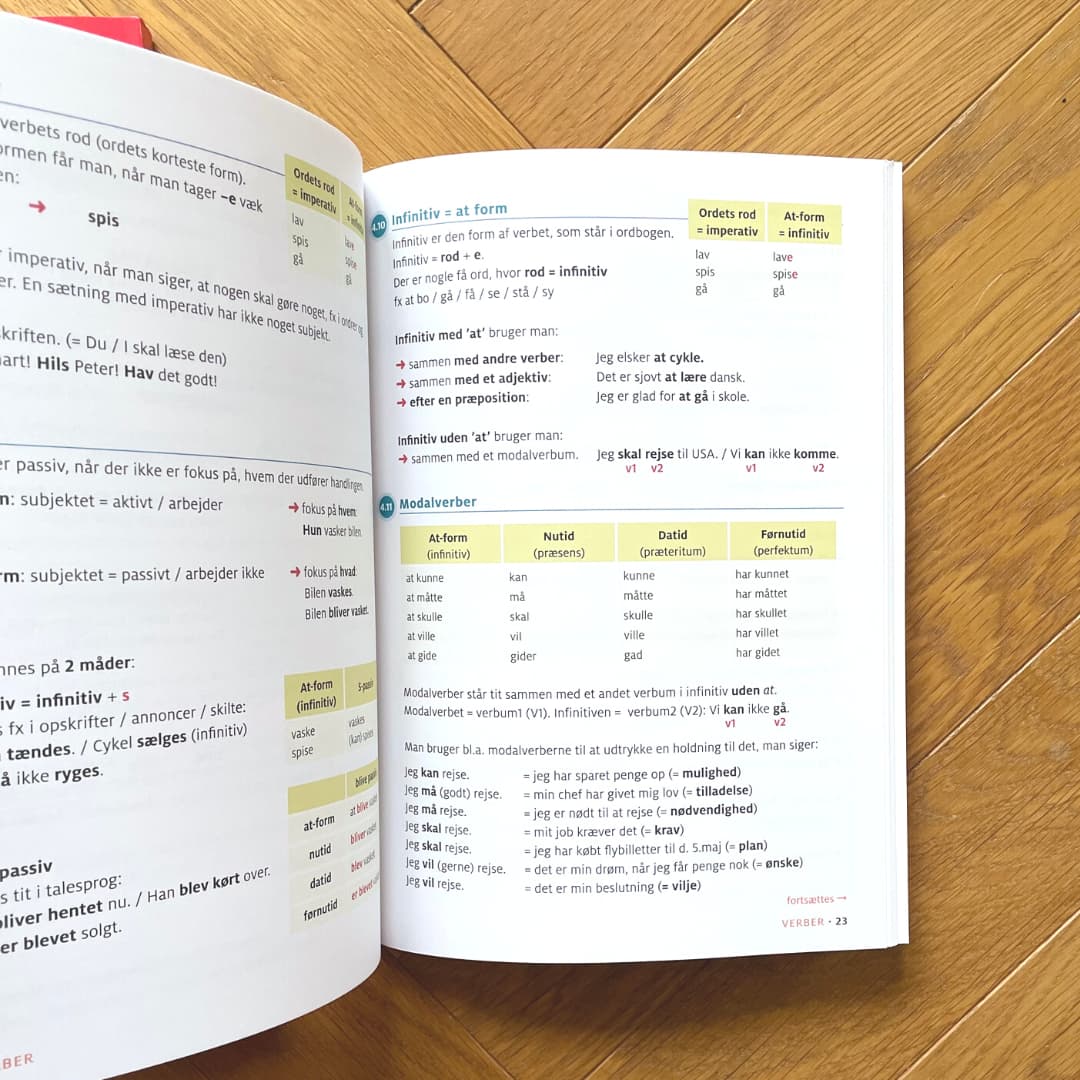 verbets rod (ordets korteste form).
ormen får man, når man tager –e væk
en:
→ spis
Ordets rod
= imperativ
lav
lave
spis
spise
gå
gå
r imperativ, når man siger, at nogen skal gøre noget, fx i ordrer og
er. En sætning med imperativ har ikke noget subjekt.
kriften. (= Du / I skal læse den)
art! Hils Peter! Hav det godt!
er passiv, når der ikke er fokus på, hvem der udfører handlingen
n: subjektet = aktivt / arbejder
→ fokus på hvem:
Hun vasker bilen.
rm: subjektet = passivt / arbejder ikke
→ fokus på hvad:
Bilen vaskes.
Bilen bliver vasket.
nnes på 2 måder:
iv = infinitiv + s
s fx i opskrifter / annoncer / skilte:
tændes. / Cykel sælges (infinitiv)
å ikke ryges.
At-form
(infinitiv)
S-passiv
vaske
vaskes
spise
(kan) spises
blive
at-form
at blive
nutid
bliver
datid
blev
førnutid
er blevet
passiv
s tit i talesprog:
bliver hentet nu. / Han blev kørt over.
er blevet solgt.
BER
4.10 Infinitiv = at form
Infinitiv er den form af verbet, som står i ordbogen.
Infinitiv = rod + e.
Der er nogle få ord, hvor rod = infinitiv
fx at bo / gå / få / se / stå / sy
Ordets rod At-form
= imperativ = infinitiv
lav lave
spis spise
gå gå
Infinitiv med 'at' bruger man:
→ sammen med andre verber: Jeg elsker at cykle.
→ sammen med et adjektiv: Det er sjovt at lære dansk.
→ efter en præposition: Jeg er glad for at gå i skole.
Infinitiv uden 'at' bruger man:
→ sammen med et modalverbum. Jeg skal rejse til USA. / Vi kan ikke komme.
v1 v2 v1 v2
4.11 Modalverber
At-form Nutid Datid Førnutid
(infinitiv) (præsens) (præteritum) (perfektum)
at kunne kan kunne har kunnet
at måtte må måtte har måttet
at skulle skal skulle har skullet
at ville vil ville har villet
at gide gider gad har gidet
Modalverber står tit sammen med et andet verbum i infinitiv uden at.
Modalverbet = verbum1 (V1). Infinitiven = verbum2 (V2): Vi kan ikke gå.
v1 v2
Man bruger bl.a. modalverberne til at udtrykke en holdning til det, man siger:
Jeg kan rejse. = jeg har sparet penge op (= mulighed)
Jeg må (godt) rejse. = min chef har givet mig lov (= tilladelse)
Jeg må rejse. = jeg er nødt til at rejse (= nødvendighed)
Jeg skal rejse. = mit job kræver det (= krav)
Jeg skal rejse. = jeg har købt flybilletter til d. 5.maj (= plan)
Jeg vil (gerne) rejse. = det er min drøm, når jeg får penge nok (= ønske)
Jeg vil rejse. = det er min beslutning (= vilje)
fortsættes →
VERBER · 23